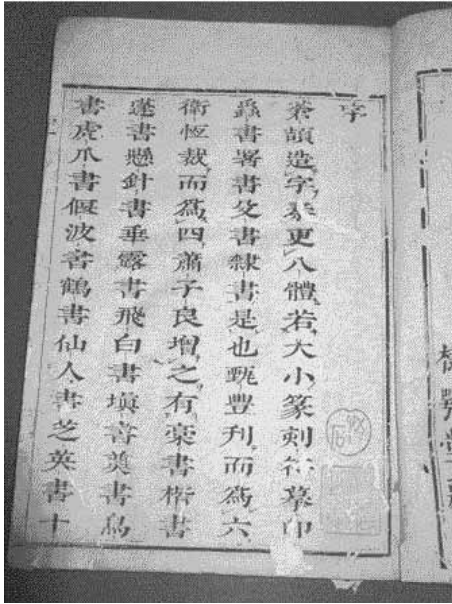 蒼頡造字秦更八體若大小篆刻符摹印
蟲書署書殳書隸書是也甄豐刋而爲六
衛恆裁而爲四蕭子良增之有稾書楷書
蓬書懸針書垂露書飛白書塡書奠書鳥
書虎爪書偃波書鶴書仙人書芝英書十